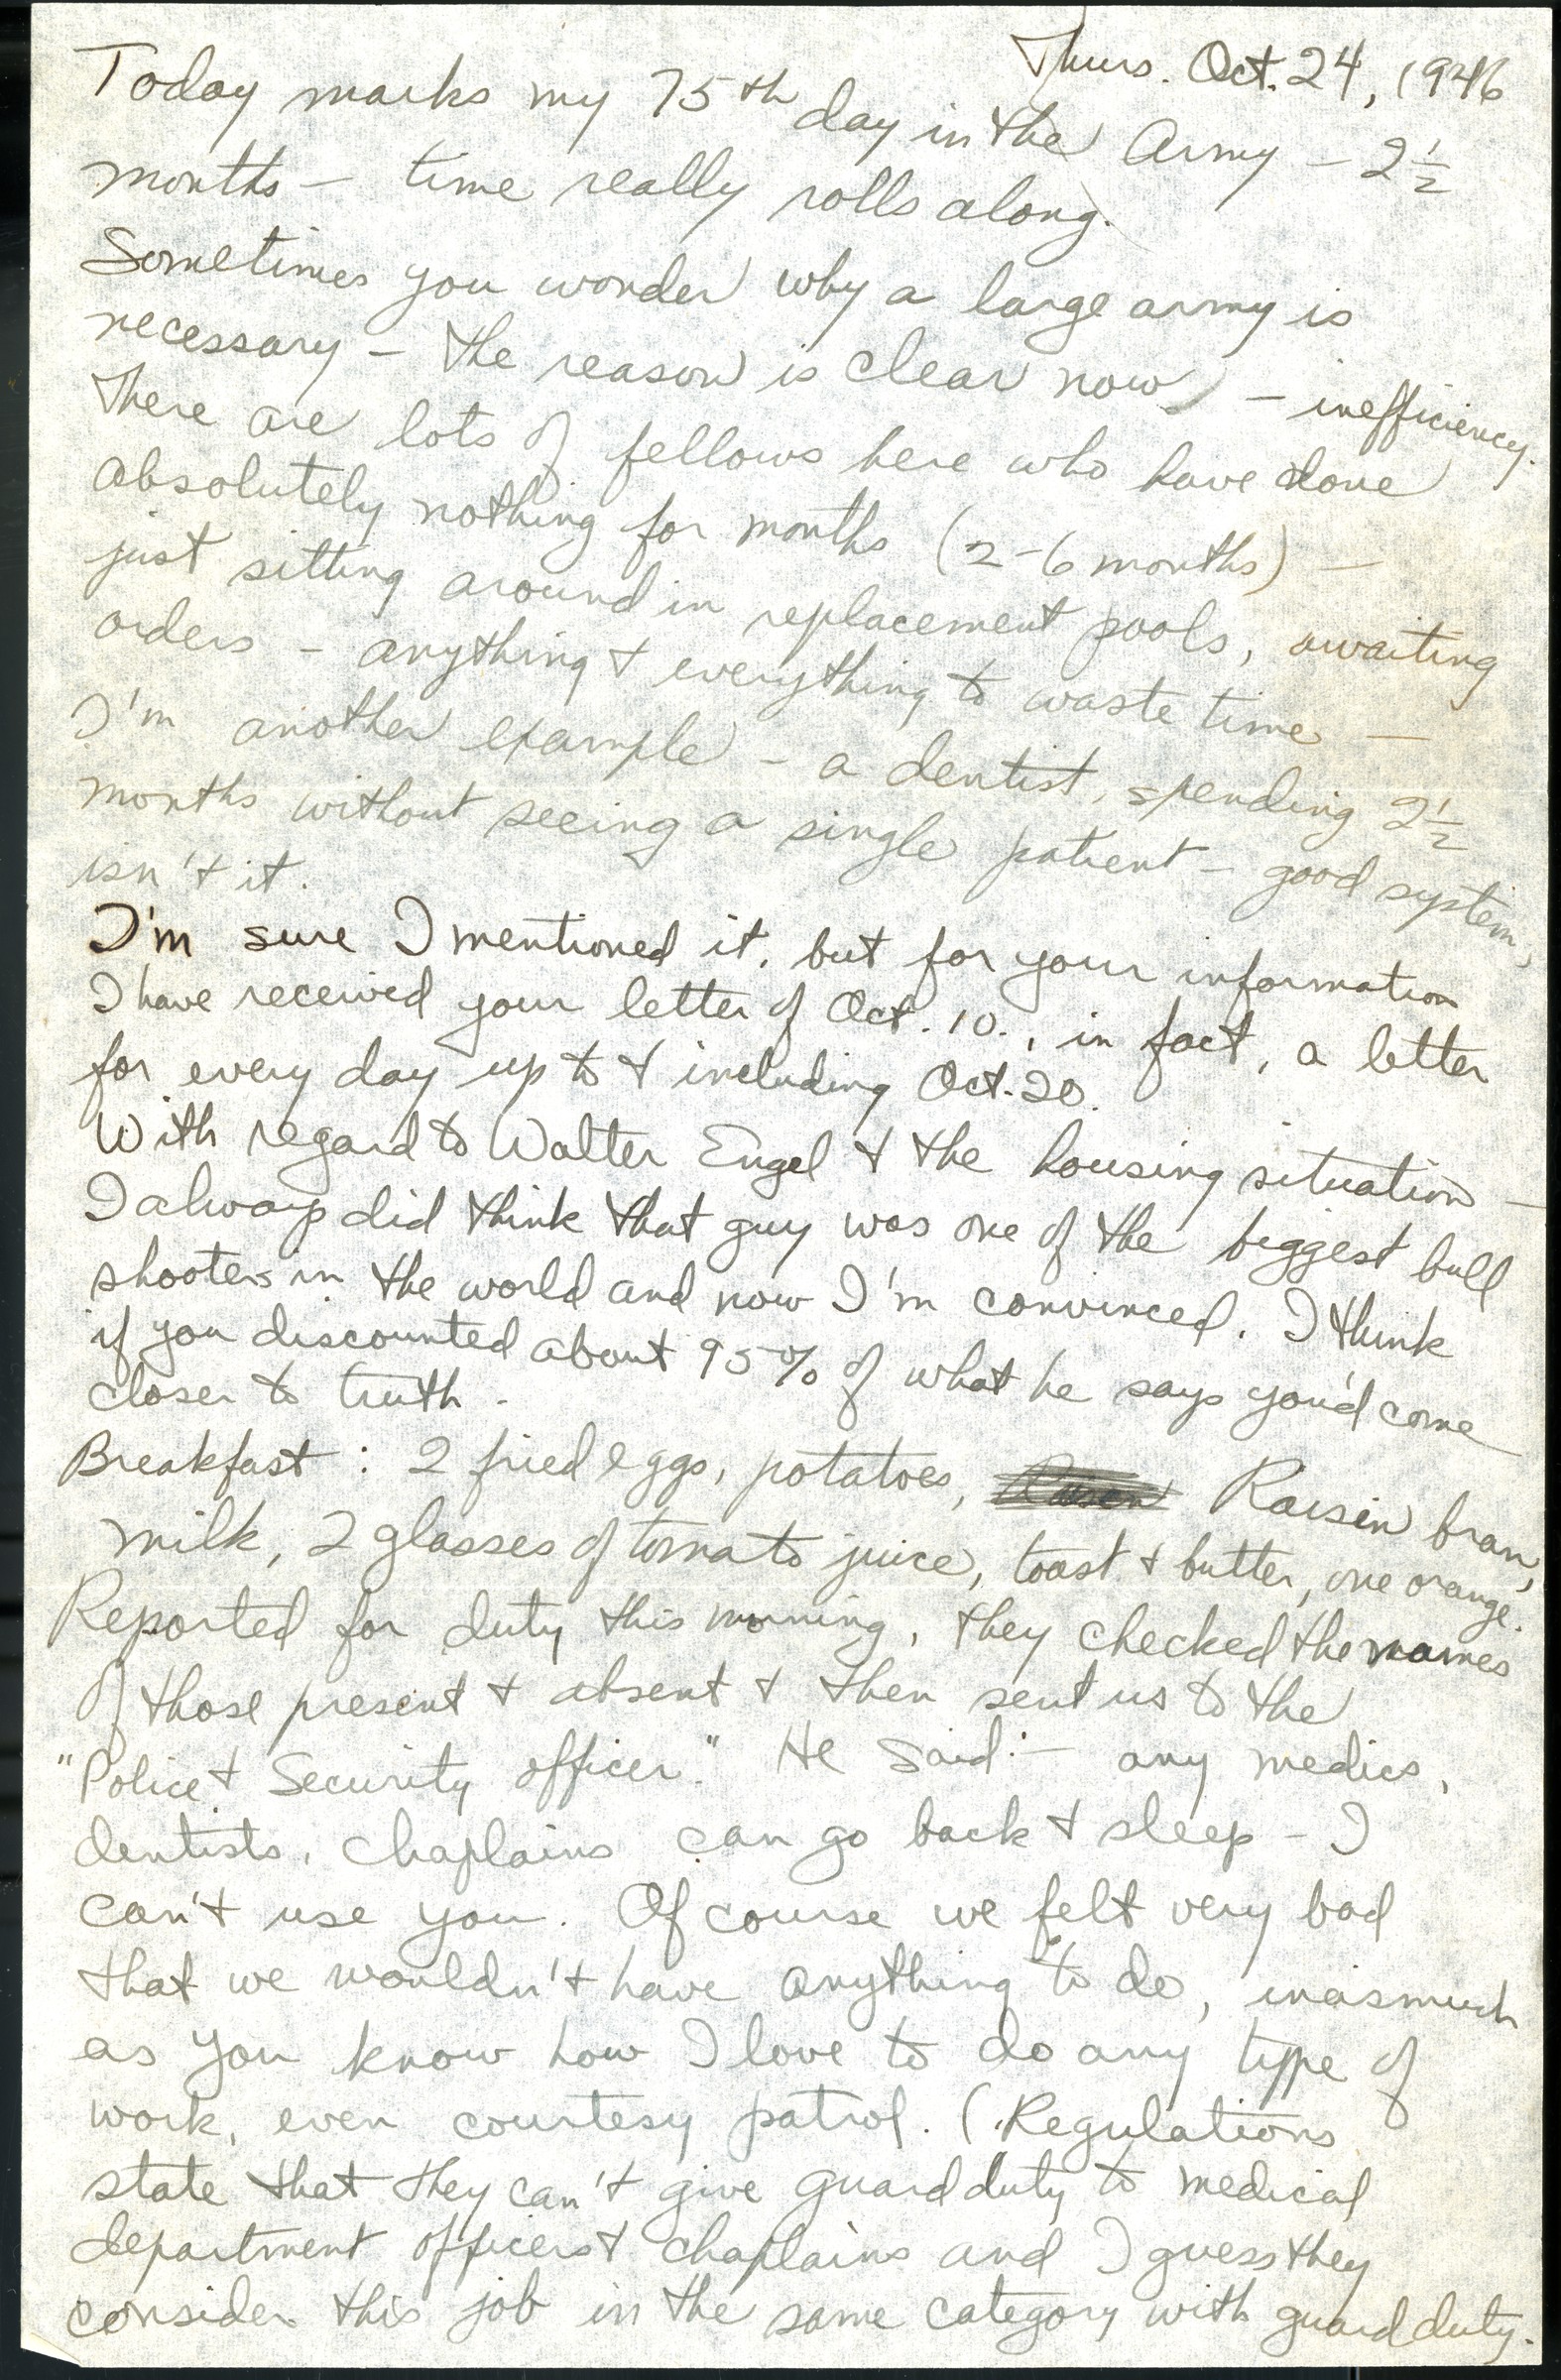 Thurs. Oct. 24, 1946
Today marks my 75th day in the Army – 2½
months – time really rolls along.
Sometimes you wonder why a large army is
necessary – the reason is clear now – inefficiency.
There are lots of fellows here who have done
absolutely nothing for months (2-6 months) –
just sitting around in replacement pools, awaiting
orders – anything & everything to waste time –
I'm another example – a dentist, spending 2½
months without seeing a single patient – good system,
isn't it.
I'm sure I mentioned it, but for your information
I have received your letter of Oct. 10., in fact, a letter
for every day up to & including Oct. 20.
With regard to Walter Engel & the housing situation –
I always did think that guy was one of the biggest bull
shooters in the world and now I'm convinced. I think
if you discounted about 95% of what he says you'd come
closer to truth.
Breakfast: 2 fried eggs, potatoes, Raisin bran,
milk, 2 glasses of tomato juice, toast & butter, one orange.
Reported for duty this morning, they checked the names
of those present & absent & then sent us to the
"Police & Security officer." He said:– any medics,
dentists, chaplains can go back & sleep – I
can't use you. Of course we felt very bad
that we wouldn't have anything to do, inasmuch
as you know how I love to do any type of
work, even courtesy patrol. (Regulations
state that they can't give guard duty to medical
department officers & chaplains and I guess they
consider this job in the same category with guard duty.